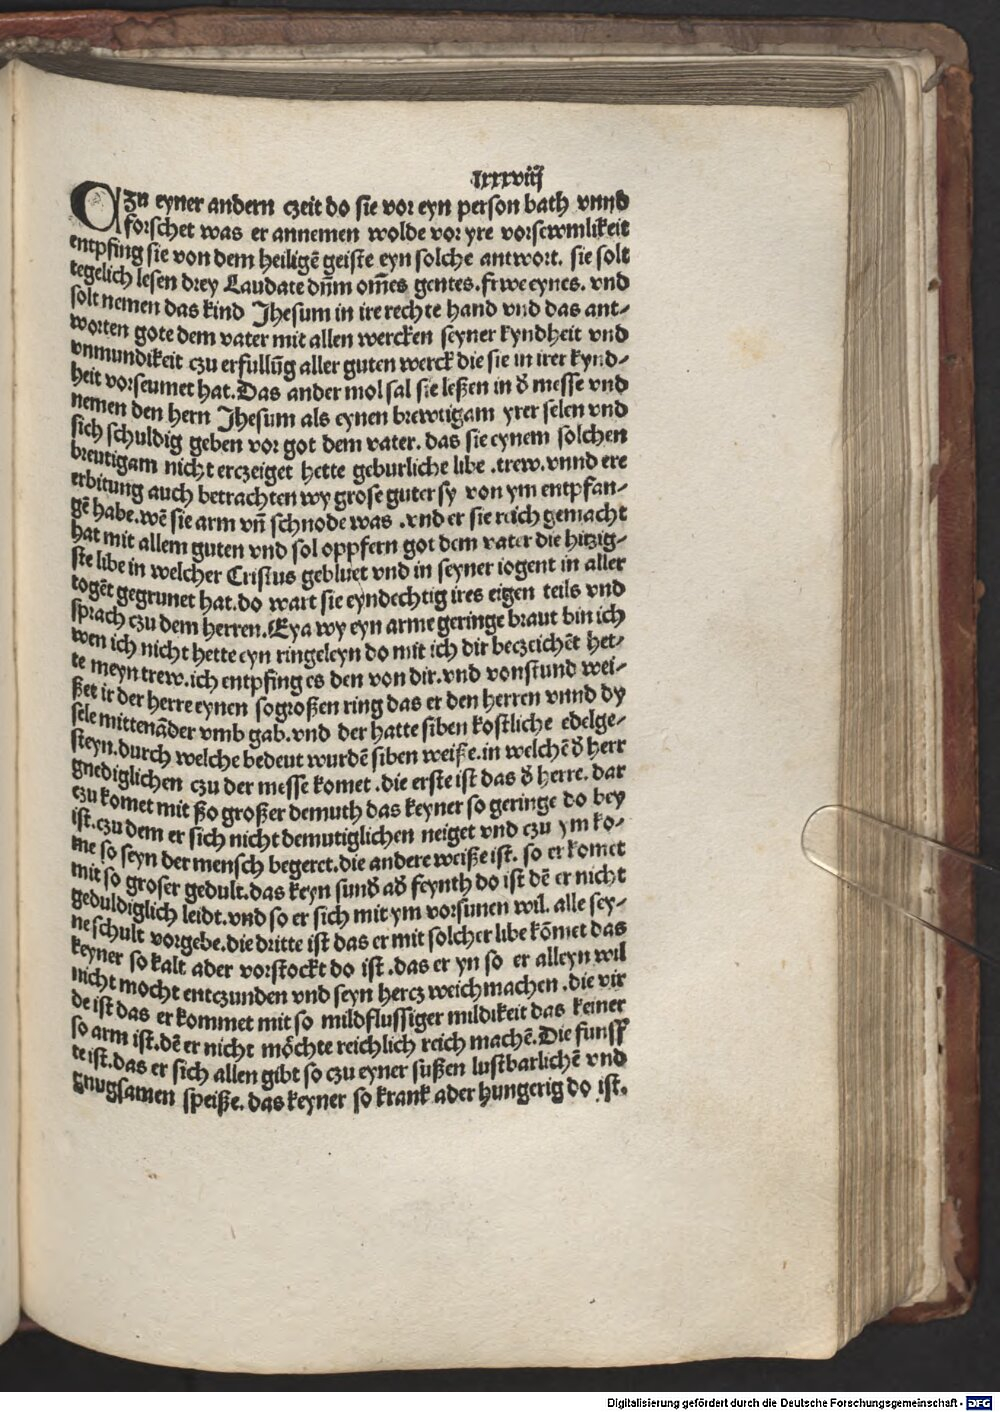 lxxxviij
CZu eyner andern czeit do sie vor eyn person bath vnnd
forschet was er annemen wolde vor yre vorsewmlikeit
entpfing sie von dem heiligē geiste eyn solche antwort. sie solt
tegelich lesen drey Laudate dnm̄ om̄es gentes. frwe eynes. vnd
solt nemen das kind Jhesum in ire rechte hand vnd das ant-
worten gote dem vater mit allen wercken seyner kyndheit vnd
vnmundikeit czu erfullūg aller guten werck die sie in irer kynd-
heit vorseumet hat. Das ander mol sal sie leßen in d̉ messe vnd
nemen den hern Jhesum als eynen brewtigam yrer selen vnd
sich schuldig geben vor got dem vater. das sie eynem solchen
breutigam nicht erczeiget hette geburliche libe .trew. vnnd ere
erbitung auch betrachten wy grose guter sy von ym entpfan-
gē habe. wē sie arm vn̄ schnode was .vnd er sie reich gemacht
hat mit allem guten vnd sol oppfern got dem vater die hitzig-
ste libe in welcher Cristus gebluet vnd in seyner iogent in aller
togēt gegrunet hat. do wart sie eyndechtig ires eigen teils vnd
sprach czu dem herren. Eya wy eyn arme geringe braut bin ich
wen ich nicht hette eyn ringeleyn do mit ich dir beczeichēt het-
te meyn trew. ich entpfing es den von dir. vnd vonstund wei-
ßet ir der herre eynen sogroßen ring das er den herren vnnd dy
sele mittenāder vmb gab. vnd der hatte siben kostliche edelge-
steyn. durch welche bedeut wurdē siben weiße. in welchē d̉ herr
gnediglichen czu der messe komet .die erste ist das d̉ herre. dar
czu komet mit ßo großer demuth das keyner so geringe do bey
ist. czu dem er sich nicht demutiglichen neiget vnd czu ym ko-
me so seyn der mensch begeret. die andere weiße ist. so er komet
mit so groser gedult. das keyn sund̉ ad̉ feynth do ist dē er nicht
geduldiglich leidt. vnd so er sich mit ym vorsunen wil. alle sey-
ne schult vorgebe. die dritte ist das er mit solcher libe kōmet das
keyner so kalt ader vorstockt do ist .das er yn so er alleyn wil
nicht mocht entczunden vnd seyn hercz weich machen .die vir
de ist das er kommet mit so mildflussiger mildikeit das keiner
so arm ist. dē er nicht möchte reichlich reich machē. Die funff
te ist. das er sich allen gibt so czu eyner sußen lustbarlichē vnd
gnugsamen speiße. das keyner so krank ader hungerig do ist.
Digitalisierung gefördert durch die Deutsche Forschungsgemeinschaft - DFG